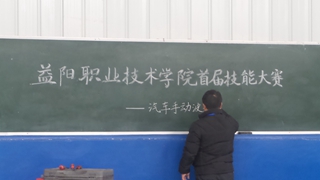 益阳职业技术学院首届技能大赛
——汽车手动波